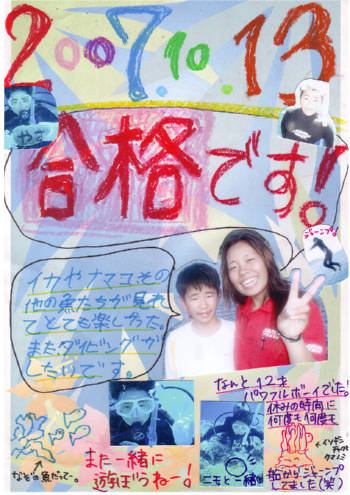 2007.10.13
合格です!
ジャーンプ!
イカやナマコその
他の魚たちが見れ
てとても楽しかった。
またダイビングが
したいです。
なんと12才
パワフルボーイでした!
休みの時間に
何度も何度も
船からジャーンプ
してました(笑)
ニモと一緒
また一緒に
遊ぼうねー!
なぞの魚だって〜。